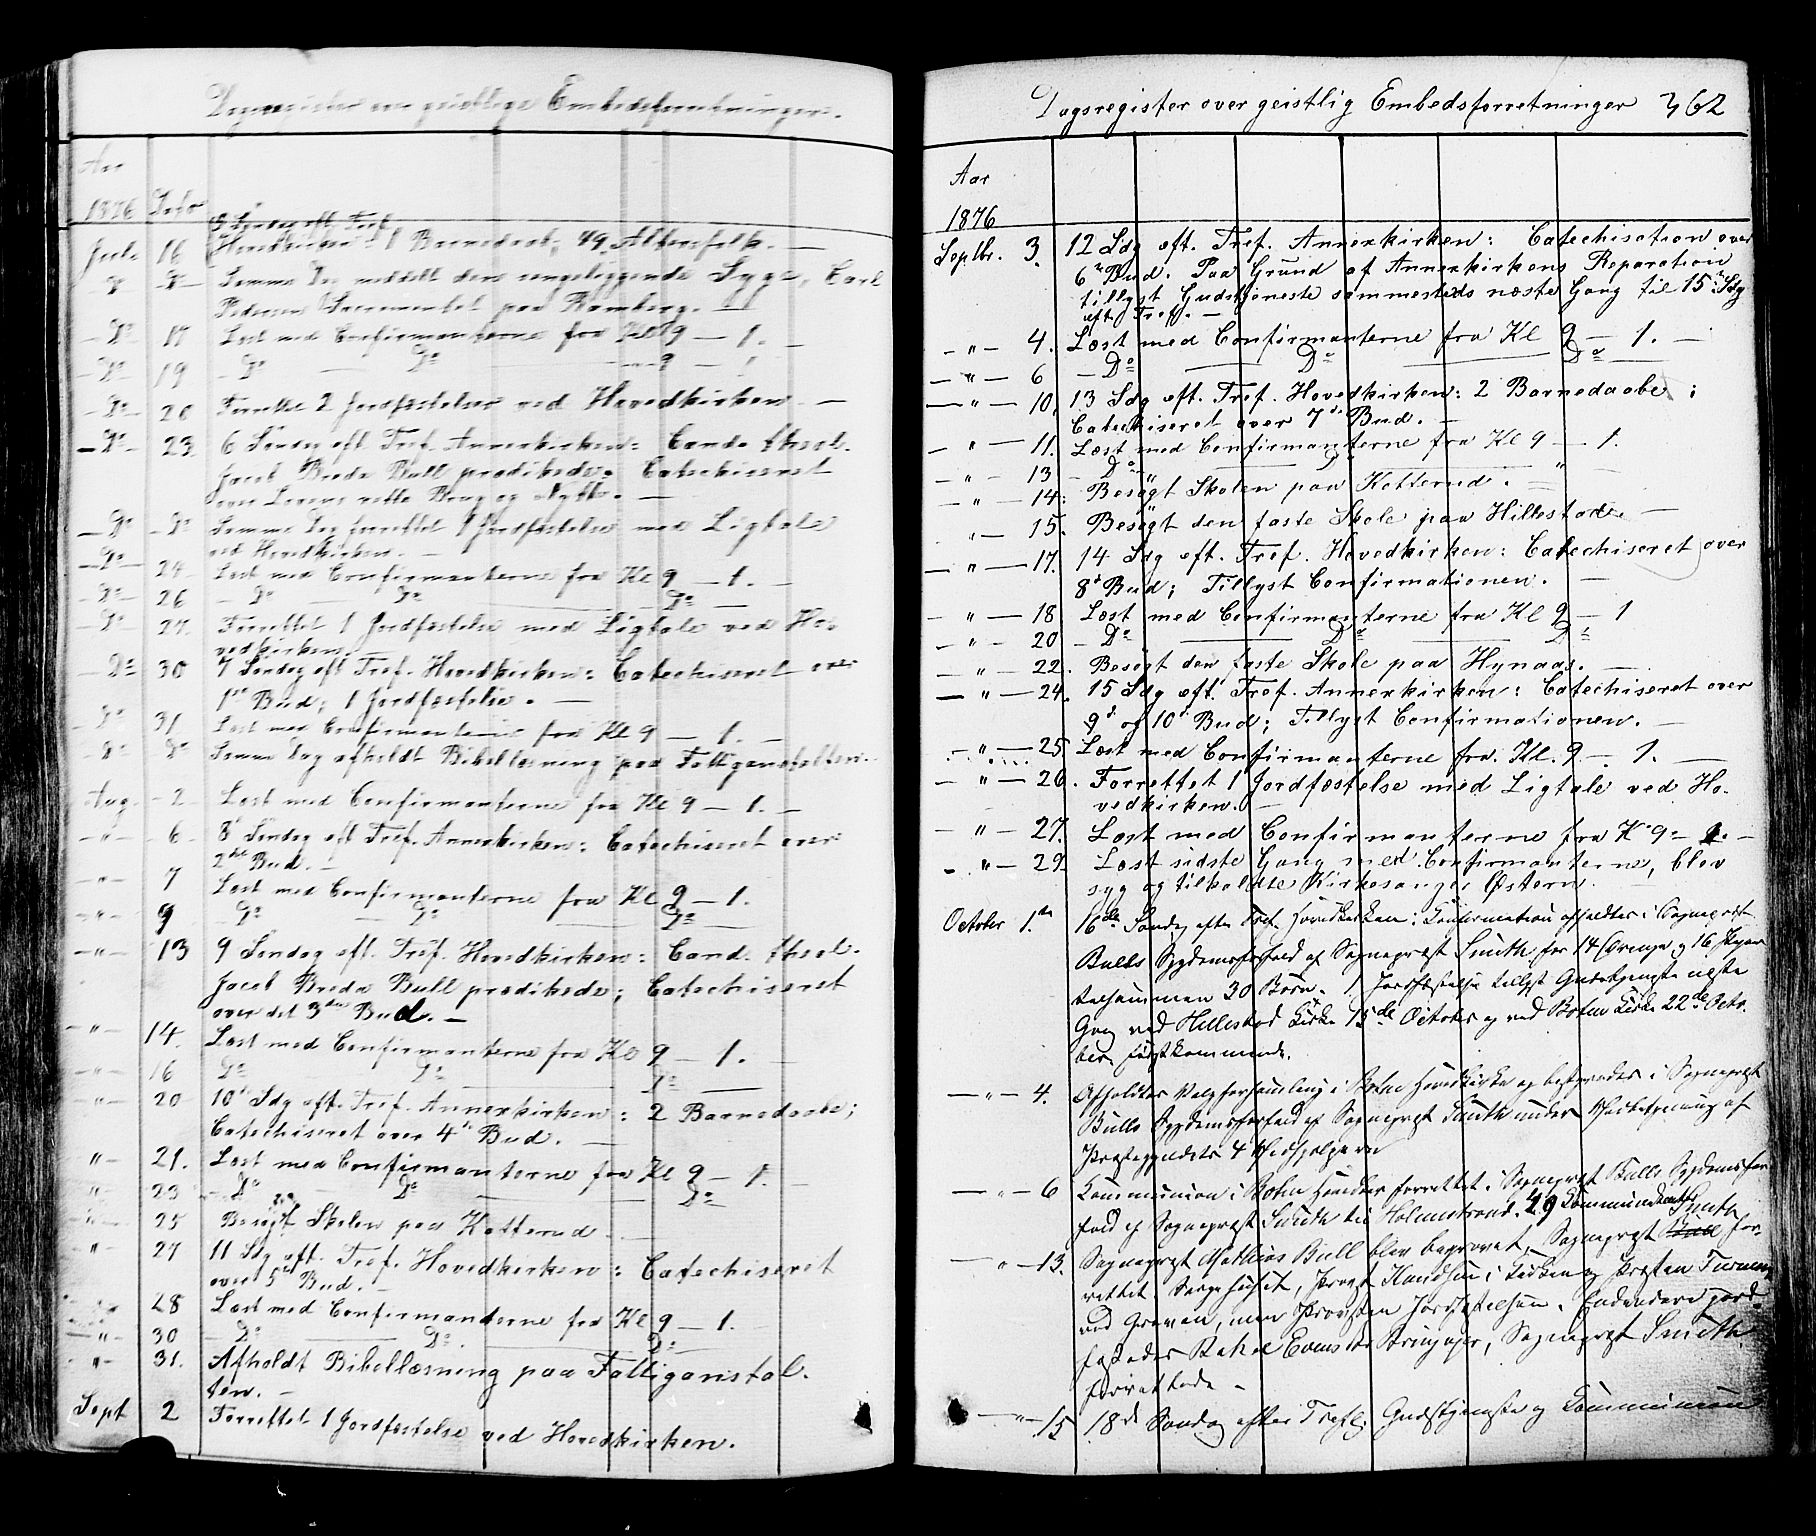 Dagsregister over geistlige Embedsforretninger.
Aar
1876 Dato
5 Søndag eft. Tref.
Juli 16 Hovedkirken: 1 Barnedaab; 49 Altersfolk. —
D° D° Samme Dag meddelt den sengeliggende Syge, Carl
Pedersen Sacramentet paa Ramberg. —
D° 17 Læst med Confirmanterne fra Kl 9 — 1. —
D° 19 — D° — D° — 9 — "
D° 20 Forrettet 2 Jordfæstelser ved Hovedkirken —
D° 23. 6 Søndag eft. Tref. Annexkirken: Cand. theol.
Jacob Breda Bull prædikede. Catechiseret
over Lovens rette Brug og Nytte. —
D° D° Samme Dag forrettet 1 Jordfæstelse med Ligtale
ved Hovedkirken. —
D° 24 Læst med Confirmanterne fra Kl 9 — 1. —
D° 26 — D° — D° — D° —
D° 27. Forrettet 1 Jordfæstelse med Ligtale ved Ho-
vedkirken.
D° 30 7 Søndag eft. Tref. Hovedkirken: Catechiseret over
1ste Bud; 1 Jordfæstelse. —
D° 31. Læst med Confirmanterne fra Kl 9 — 1. —
D° D° Samme Dag afholdt Bibellæsning paa Fattiganstalten.
Aug. 2 Læst med Confirmanterne fra Kl 9 — 1. —
" 6. 8 Søndag eft. Tref. Annexkirken: Catechiseret over
2det Bud. —
" 7 Læst med Confirmanterne fra Kl 9 — 1.
" 9 D° — D° — D° —
" 13 9 Søndag eft. Tref. Hovedkirken: Cand. theol.
Jacob Breda Bull prædikede; Catechiseret
over det 3die Bud. —
" 14. Læst med Confirmanterne fra Kl 9 — 1. —
" 16 D° — D° — D° —
" 20 10 Sdg eft. Tref. Annexkirken: 2 Barnedaabe;
Catechiseret over 4de Bud. —
" 21. Læst med Confirmanterne fra Kl 9 — 1. —
" 23 — D° — D° — D°
" 25 Besøgt Skolen paa Kotterud. —
" 27 11 Sdg eft. Tref. Hovedkirken: Catechiseret
over 5 Bud. —
28 Læst med Confirmanterne fra Kl 9 — 1. —
" 30 — D° — D° — D° —
" 31. Afholdt Bibellæsning paa Fattiganstal-
ten. —
Sept 2 Forrettet 1 Jordfæstelse ved Hovedkirken.
Dagsregister over geistlig Embedsforretninger 362
Aar
1876
Septbr. 3. 12 Sdg eft. Tref. Annexkirken: Catechisation over
6te Bud. Paa Grund af Annexkirkens Reparation
tillyst Gudstjeneste sammesteds næste Gang til 15 Sdg
eft. Tref. —
— " — 4. Læst med Confirmanterne fra Kl 9 — 1. —
— " — 6 — D° — D° — D° —
— " — 10, 13 Sdg eft. Tref. Hovedkirken: 2 Barnedaabe;
Catechiseret over 7de Bud. —
" — 11. Læst med Confirmanterne fra Kl 9 — 1.
— " — 13 — D° "
— " — 14: Besøgt Skolen paa Kotterud. —
— " — 15. Besøgt den faste Skole paa Hillestad. —
— " — 17. 14 Sdg eft. Tref. Hovedkirken: Catechiseret over
8de Bud; Tillyst Confirmationen. —
— " — 18 Læst med Confirmanterne fra Kl 9 — 1
— " — 20 — D° — D° — D°
— " — 22. Besøgt den faste Skole paa Hynaas. —
— " — 24. 15 Sdg eft. Tref. Annexkirken: Catechiseret over
9d og 10 Bud; Tillyst Confirmationen. —
— " — 25 Læst med Confirmanterne fra. Kl. 9 — 1. —
— " — 26. Forrettet 1 Jordfæstelse med Ligtale ved Ho-
vedkirken. —
— " — 27. Læst med Confirmanterne fra Kl 9 — 1. —
— " — 29 Læst sidste Gang med Confirmanterne, blev
syg og tilkaldte Kirkesanger Østern.
October 1ste 16de Søndag efter Tref. Hovedkirken: Confirmation afholdtes i Sogneprest
Bulls Sygdomsforfald af Sogneprest Smith for 14 Drenge og 16 Piger
tilsammen 30 Børn. 1 Jordfæstelse tillyst Gudstjeneste næste
Gang ved Hillestad Kirke 15de October og ved Botne Kirke 22de Octo-
ber førstkommende.
— " — 4. Afholdtes Valgforsamling i Botne Hovedkirke og bestyredes i Sogneprest
Bulls Sygdomsforfald af Sogneprest Smith under Medbetjening af
Præstegjeldets 4 Medhjælpere
— " — 6 Communion i Botne Hovedkr forrettet i Sogneprest Bulls Sygdomsfor-
fald af Sogneprest Smith til Holmestrand. 29 Communicantes
— " — 13. Sogneprest Mathias Bull blev begravet, Sogneprest Bull Smith for-
rettet i Sørgehuset, Prost Knudsen i Kirken og Presten
ved Graven, men Provsten Jordfæstelsen. Endvidere jord-
fæstedes Rakel Evensdtr, Sogneprest Smith
forrettede —
— " — 15 18d Søndag efter Trefl. Gudstjeneste og Communion